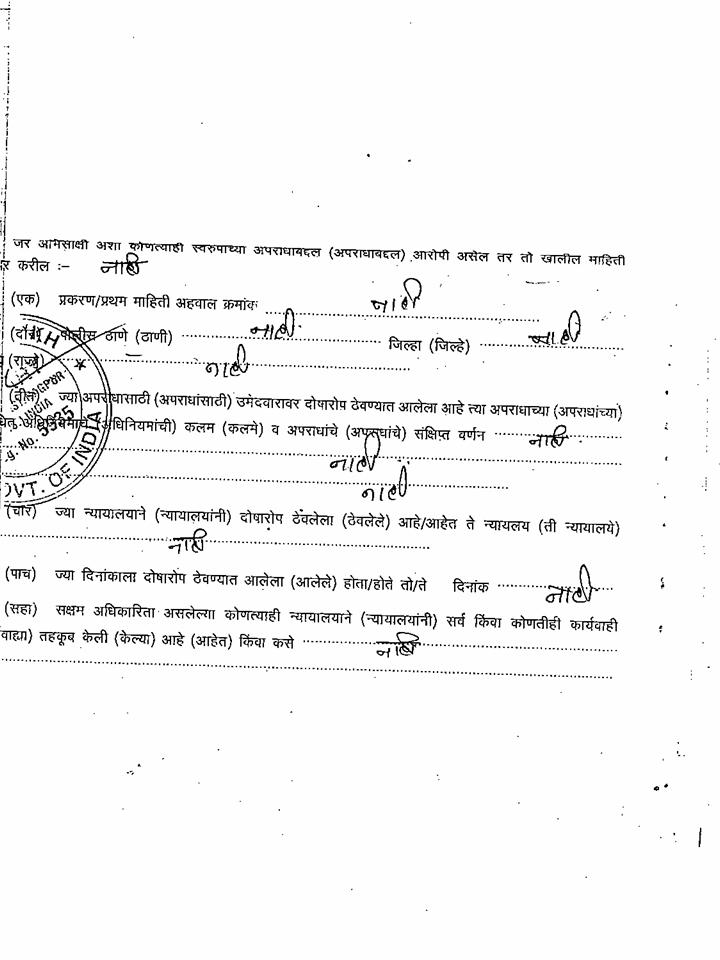 जर अभिसाक्षी अशा कोणत्याही स्वरुपाच्या अपराधाबद्दल (अपराधाबद्दल) आरोपी असेल तर तो खालील माहिती
र करील :- नाही
(एक) प्रकरण/प्रथम माहिती अहवाल क्रमांक नाही
(दोन) पोलीस ठाणे (ठाणी) नाही जिल्हा (जिल्हे) नाही
(राज्ये) नाही
(तीन) ज्या अपराधासाठी (अपराधांसाठी) उमेदवारावर दोषारोप ठेवण्यात आलेला आहे त्या अपराधाच्या (अपराधांच्या)
(अधिनियमांची) कलम (कलमे) व अपराधांचे (अपराधांचे) संक्षिप्त वर्णन नाही
नाही
नाही
(चार) ज्या न्यायालयाने (न्यायालयांनी) दोषारोप ठेवलेला (ठेवलेले) आहे/आहेत ते न्यायलय (ती न्यायालये)
नाही
(पाच) ज्या दिनांकाला दोषारोप ठेवण्यात आलेला (आलेले) होता/होते तो/ते दिनांक नाही
(सहा) सक्षम अधिकारिता असलेल्या कोणत्याही न्यायालयाने (न्यायालयांनी) सर्व किंवा कोणतीही कार्यवाही
वाह्या) तहकूब केली (केल्या) आहे (आहेत) किंवा कसे नाही
INDIA
g. No. 5925
OVT. OF INDIA